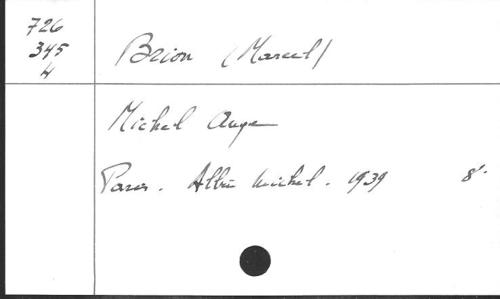 726
345
4
Brion (Marcel)
Michel Ange
Paris. Albin Michel. 1939 8°